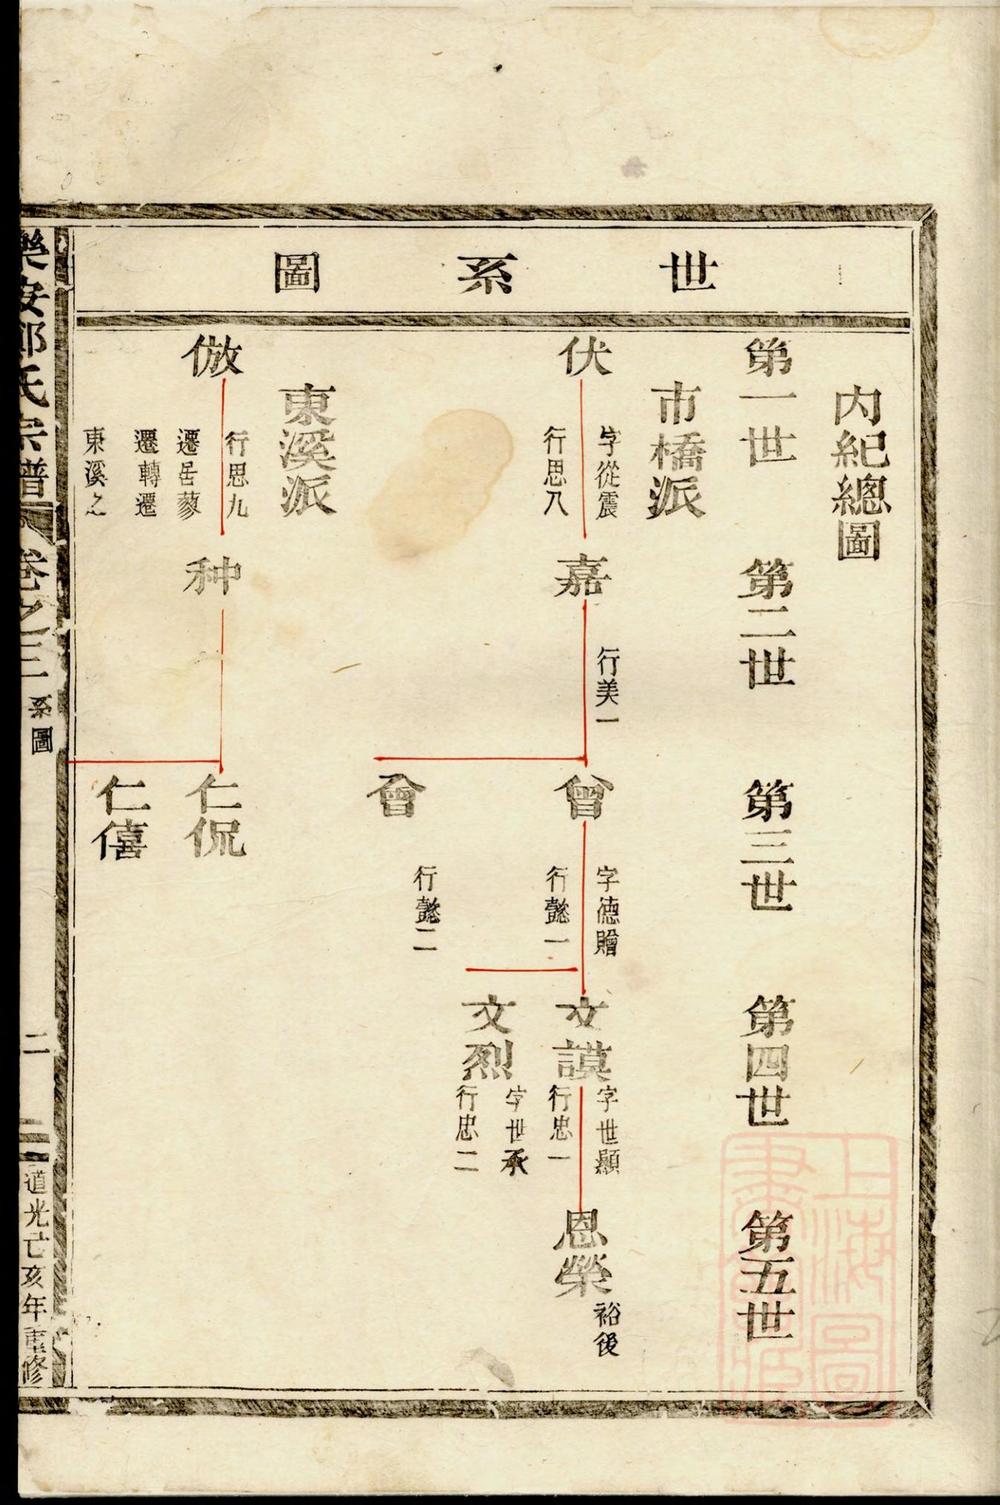 世系圖
內紀總圖
第一世
第二世
第三世
第四世
第五世
市橋派
伏
字從震
行思八
嘉
行美一
曾
字德贈
行懿一
文謨
字世顯
行忠一
恩榮
裕後
文烈
字世承
行忠二
會
行懿二
東溪派
倣
行思九
遷居蓼
遷轉遷
東溪之
种
仁侃
仁僖
樂安 氏宗譜
卷之三
系圖
二
道光 亥年重修
上海圖書館藏